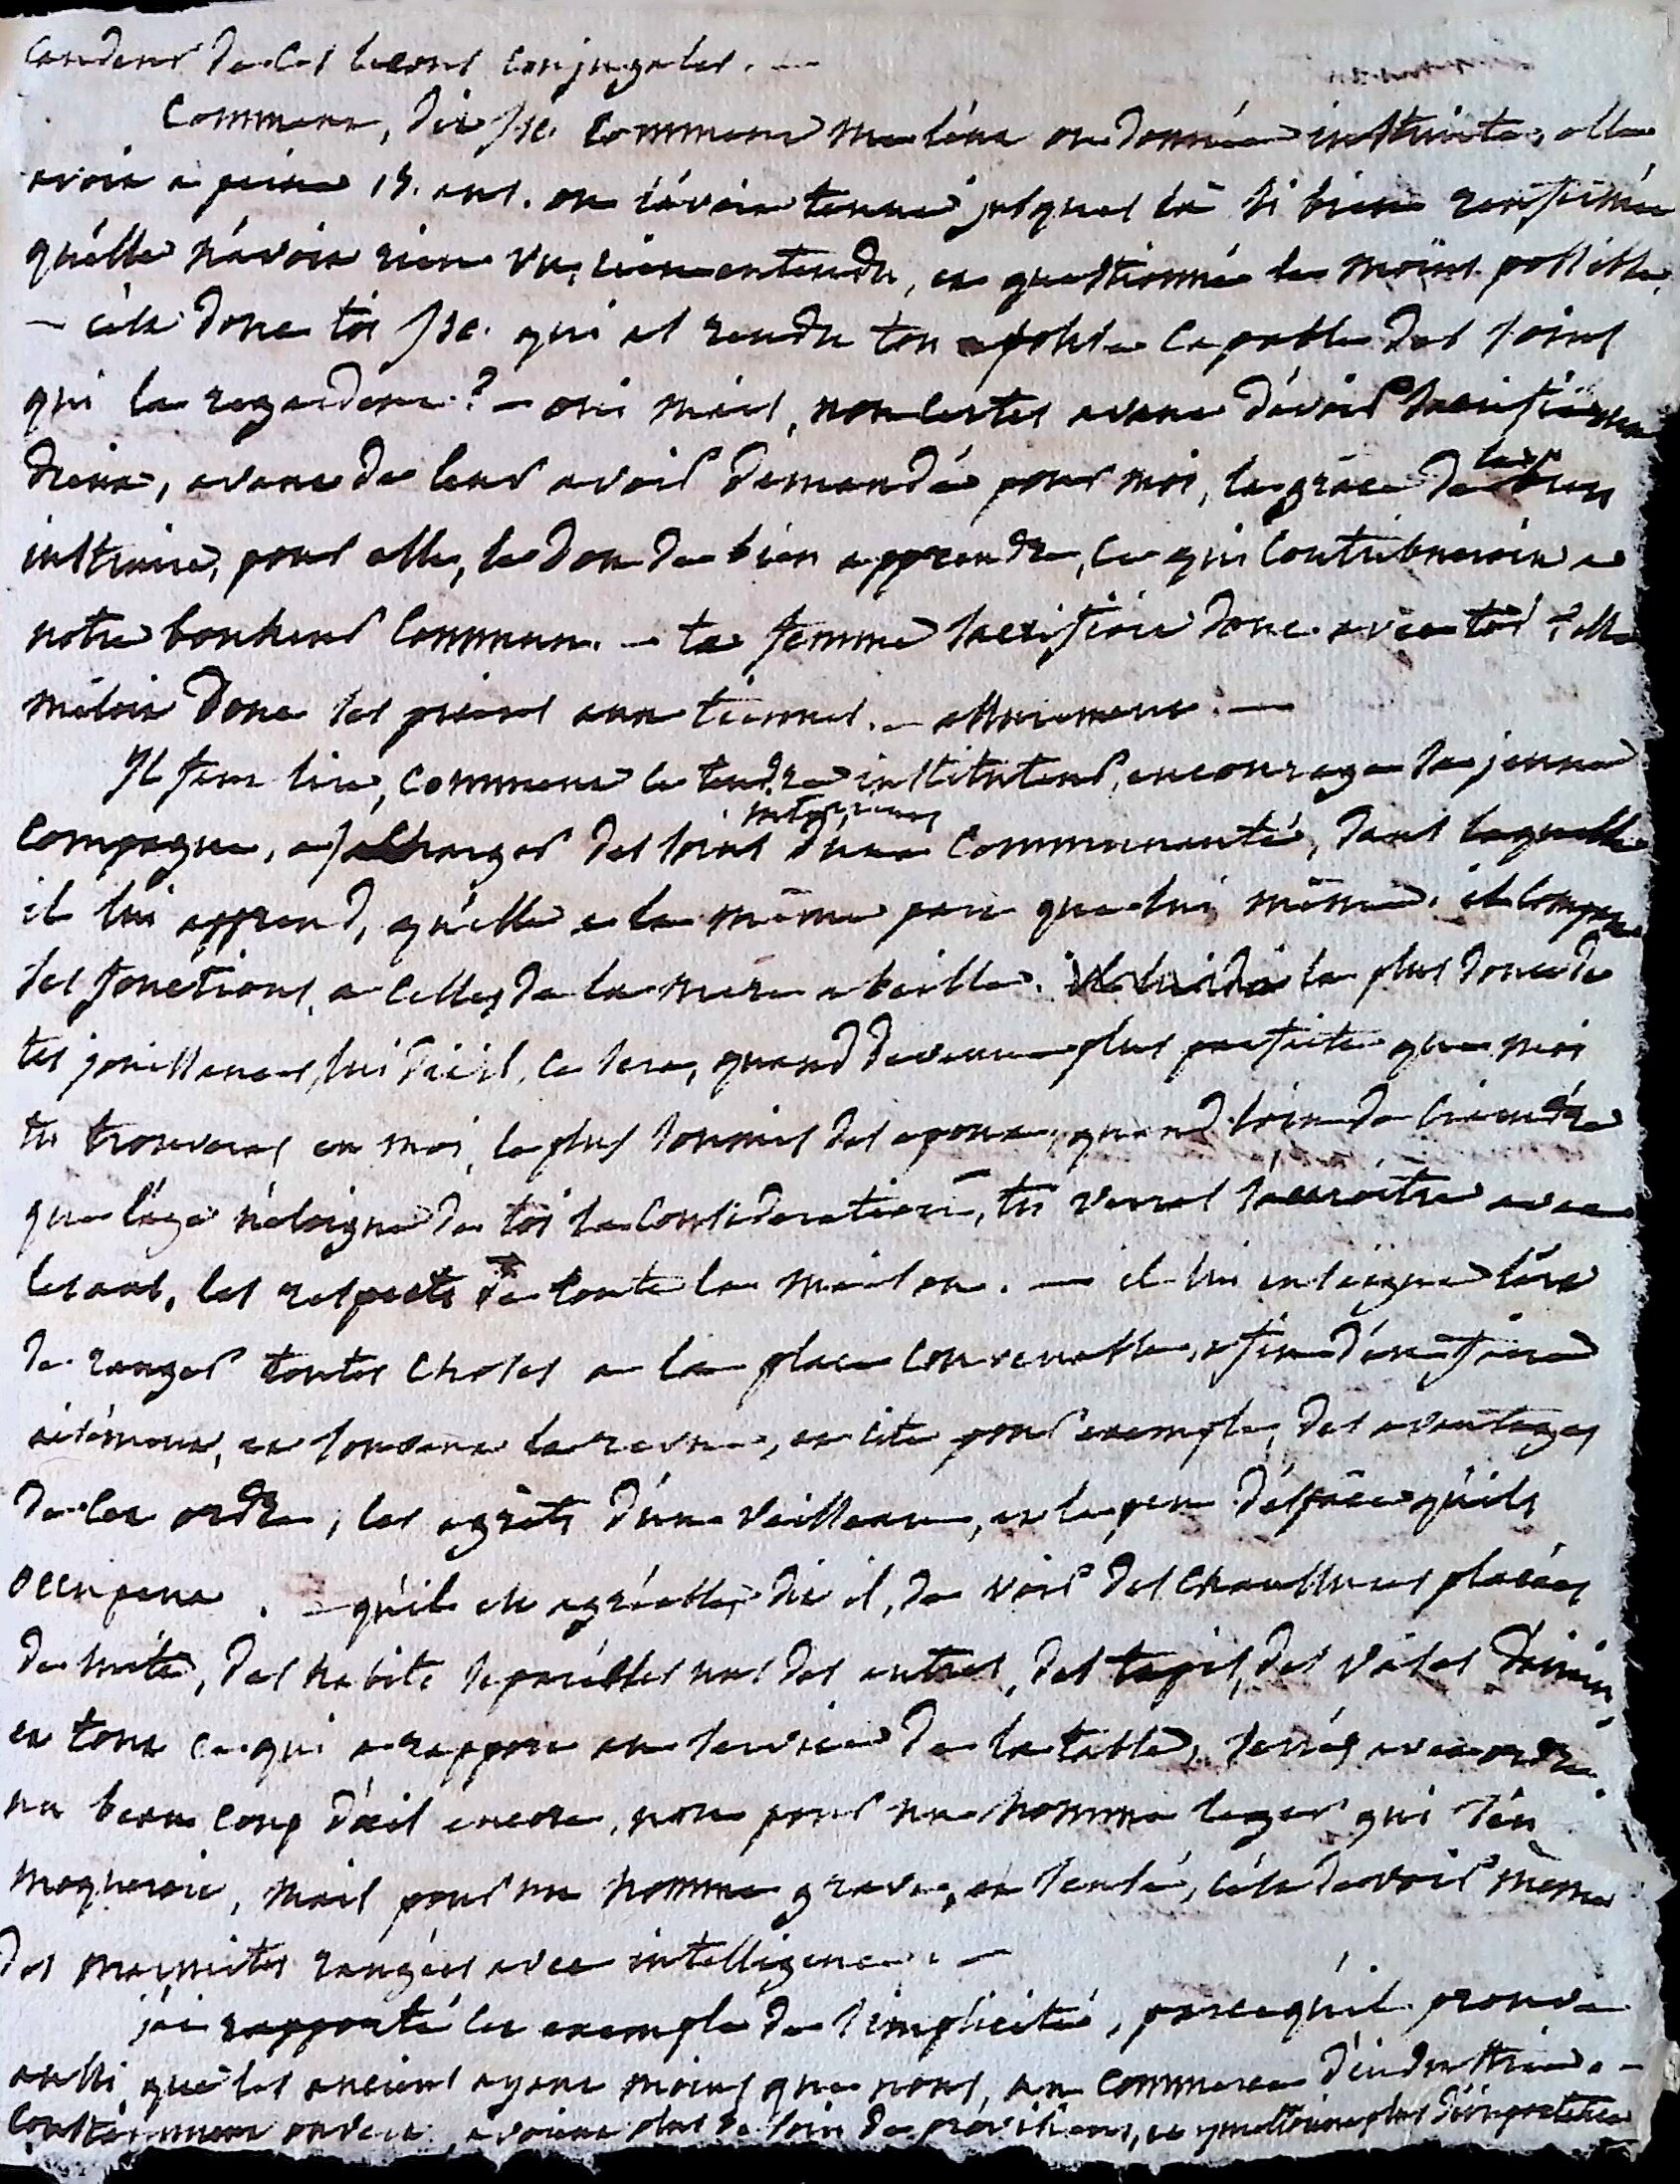 candeur de ces lecons conjugales. —
Comment, dit Isc. comment me l'eut on donnée instruite, elle
avoit a peine 15. ans. on l'avoit tenue jusques là si bien renfermée
qu'elle n'avoit rien vu, rien entendu, et questionné le moins possible.
— c'est donc toi Isc. qui as rendu ton epouse capable des soins
qui la regardent? — oui mais, non certes avant d'avoir sacrifié aux
dieux, avant de leur avoir demandé pour moi, la grâce de la bien
instruire, pour elle, le don de bien apprendre, ce qui contribueroit a
notre bonheur commun. — ta femme sacrifioit donc avec toi? elle
mêloit donc ses prieres aux tiennes. — assurement. —
Il faut lire, comment le tendre instituteur, encourage sa jeune
compagne, a se charger des soins interieurs d'une communauté, dans laquelle
il lui apprend, qu'elle a la même part que lui même. il compare
ses fonctions, a celles de la mere abeille. la plus douce de
tes jouissances, lui dit il, ce sera, quand devenue plus parfaite que moi
tu trouveras en moi, le plus soumis des epoux, quand loin de craindre
que l'âge n'eloigne de toi la consideration, tu verras s'accroître avec
les ans, les respects de toute la maison. — il lui enseigne l'art
de ranger toutes choses a la place convenable, afin d'en faire
aisément, et souvent la revue, et cite pour exemple, des avantages
de cet ordre, les agrêts d'un vaisseau, et le peu d'espace qu'ils
occupent. — qu'il est agréable, dit il, de voir des chaussures placées
de suite, des habits separés les uns des autres, des tapis, des vases d'airain,
et tout ce qui a rapport au service de la table, serrés avec ordre.
un beau coup d'œil encore, non pour un homme leger qui s'en
moqueroit, mais pour un homme grave, et sensé, c'est de voir même
des marmites rangées avec intelligence. —
j'ai rapporté cet exemple de simplicité, parcequ'il prouve
aussi, que les anciens ayant moins que nous, un commerce d'industrie
constamment ouvert, avoient plus de soin de provisions, et y mettoient plus d'importance